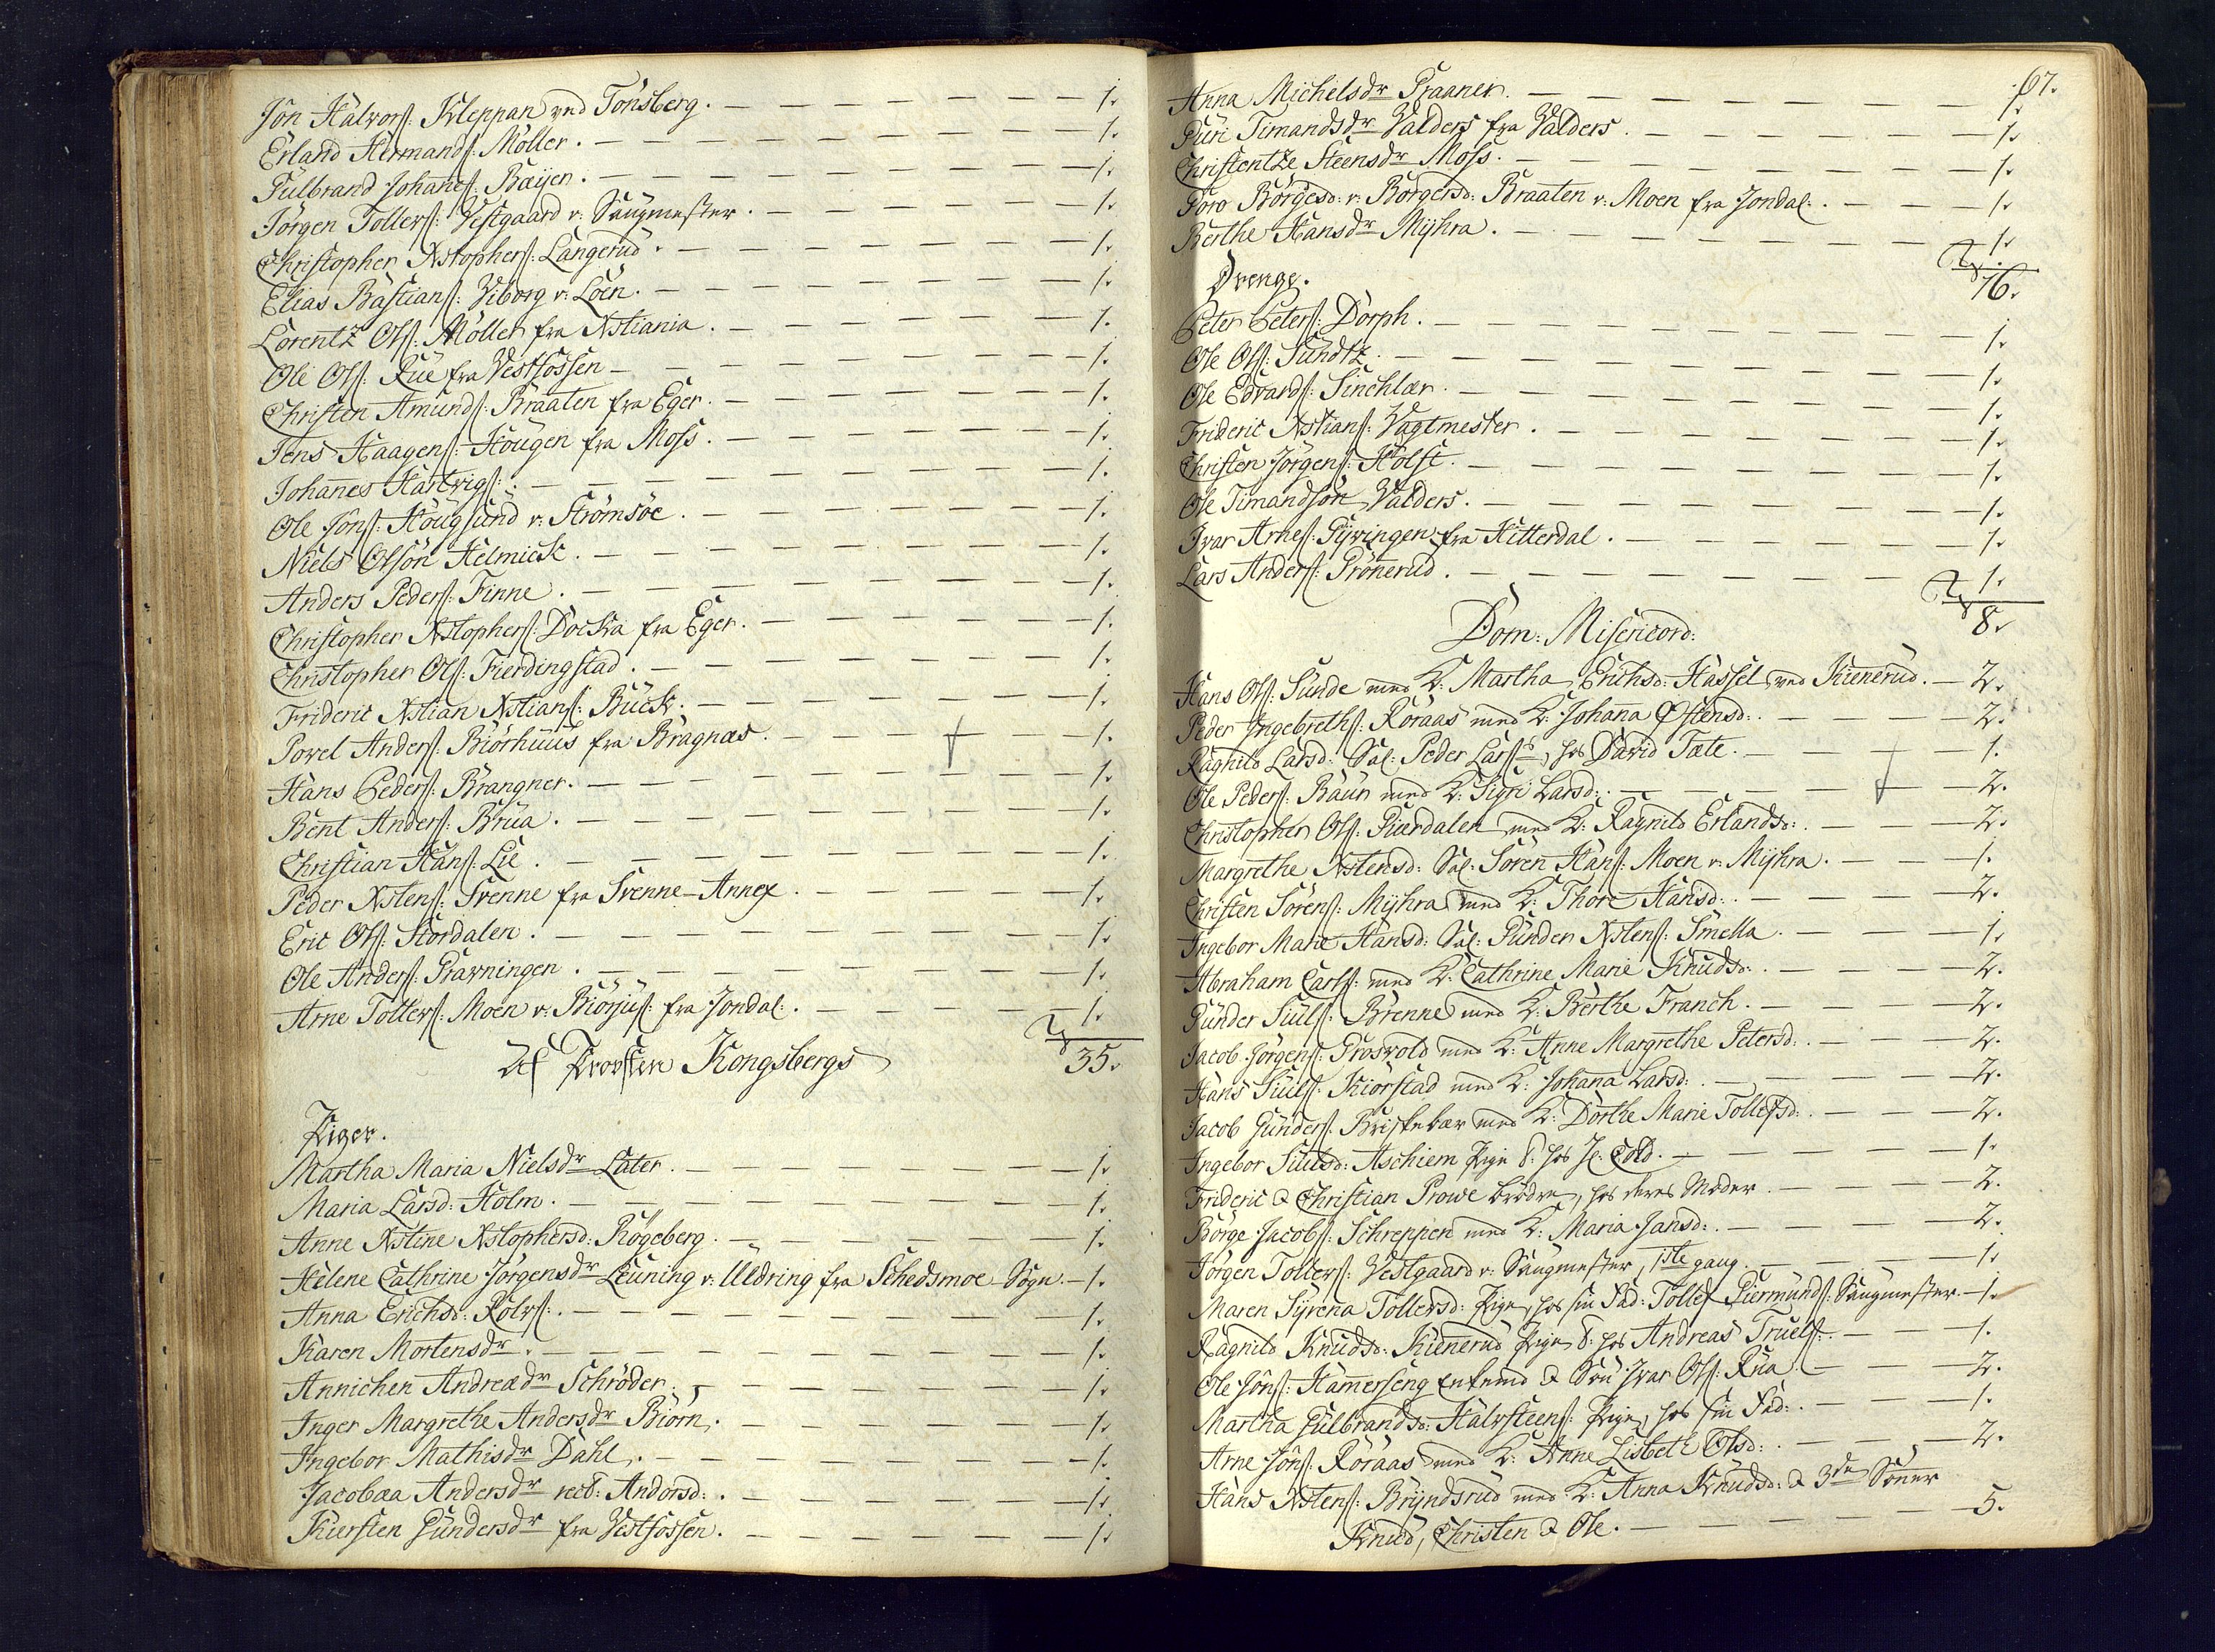 Jon Halvors: Kleppan ved Tönsberg. 1.
Erland Hermands: Möller. 1.
Gulbrand Johanes: Bæyer. 1.
Jörgen Tollers: Vestgaard v: Saugmester. 1.
Christopher Xstophers: Langerud. 1.
Elias Bastians: Viborg v: Loen. 1.
Lorentz Ols: Möller fra Xstiania. 1.
Ole Ols: Rue fra Vestfossen 1.
Christen Amunds: Braaten fra Eger. 1.
Jens Haagens: Hougen fra Moss. 1.
Johanes Hartvigs: 1.
Ole Jöns: Hougsund v: Strömsöe. 1.
Niels Olsön Helmick. 1.
Anders Peders: Finne. 1.
Christopher Xstophers: Docka fra Eger. 1.
Christopher Ols: Fierdingstad. 1.
Frideric Xstian Xstians: Buck. 1.
Povel Anders: Biörhuus fra Bragnæs. 1.
Hans Peders: Brangner. 1.
Bent Anders: Brua. 1.
Christian Hans: Lie. 1.
Peder Xstens: Svenne fra Svenne-Annex. 1.
Eric Ols: Stordalen. 1.
Ole Anders: Gravningen. 1.
Arne Tollefs: Moen v: Biörjus: fra Jondal. 1.
35.
Af Provsten Kongsbergs
Piger.
Martha Maria Nielsdr Later. 1.
Maria Larsd: Holm. 1.
Anne Xstine Xstophersd: Rögeberg. 1.
Helene Cathrine Jörgensdr Leuning v: Uldring fra Schedsmoe Sogn 1.
Anna Erichsd: Rolvs: 1.
Karen Mortensdr. 1.
Annichen Andreædr Schröder. 1.
Inger Margrethe Andersdr Biörn. 1.
Ingebor Mathisdr Dahl. 1.
Jacobæa Andersdr rect: Andorsd: 1.
Kiersten Gundersdr fra Vestfossen. 1.
67.
Anna Michelsdr Graaner. 1.
Guri Timandsdr Valders fra Valders. 1.
Christentze Steensdr Moss. 1.
Goro Börgesd: v: Borgersd: Braaten v: Moen fra Jondal. 1.
Berthe Hansdr Myhra. 1.
16.
Drenge.
Peter Peters: Dorph. 1.
Ole Ols: Sundtz. 1.
Ole Edvards: Sinchlær. 1.
Frideric Xstians: Vagtmester. 1.
Christen Jörgens: Holst. 1.
Ole Timandsön Valders. 1.
Ivar Arnes: Gyvringen fra Hitterdal. 1.
Lars Anders: Grönerud. 1.
8.
Dom: Misericord:
Hans Ols: Sunde med K: Martha Erichsd: Hassel ved Kienerud. 2.
Peder Ingebreths: Röraas med K: Johana Östensd: 2.
Ragnild Larsd: Sal: Peder Lars, hos David Tæte. 1.
Ole Peders: Baun med K: Sigri Larsd: 2.
Christopher Ols: Giærdalen med K: Ragnild Erlandsd: 2.
Margrethe Xstensd: Sal: Sören Hans: Moen v: Myhra. 1.
Christen Sörens: Myhra med K: Thore Hansd: 2.
Ingebor Marie Hansd: Sal: Gunder Xstens: Smetta. 1.
Abraham Carls: med K: Cathrine Marie Knudsd: 2.
Gunder Juuls: Brenne med K: Berthe Franch. 2.
Jacob Jörgens: Grosvold med K: Anne Margrethe Petersd: 2.
Hans Juuls: Kiörstad med K: Johana Larsd: 2.
Jacob Gunders: Briskebær med K: Dorthe Marie Tollefsd: 2.
Ingebor Juulsd: Aschiem Pige hos Cold. 1.
Frideric & Christian Prowe brödre, hos deres Moder. 2.
Börge Jacobs: Schreppen med K: Maria Jansd: 2.
Jörgen Tollefs: Vestgaard v: Saugmester, 1ste gang. 1.
Maren Syrena Tollefsd: Pige, hos sin Fad: Tollef Giermunds: Saugmester. 1.
Ragnild Knudsd: Kienerud Pige hos Andreas Truels: 1.
Ole Jöns: Hamerseng Enkemd & Sön Ivar Ols: Rua. 2.
Martha Gulbrandsd: Halvsteens: Pige, hos sin Fad: 1.
Arne Jöns: Röraas med K: Anne Lisbeth Olsd: 2.
Hans Xstens: Bryndsrud med K: Anna Knudsd: & 3de Sönner
Knud, Christen & Ole. 5.